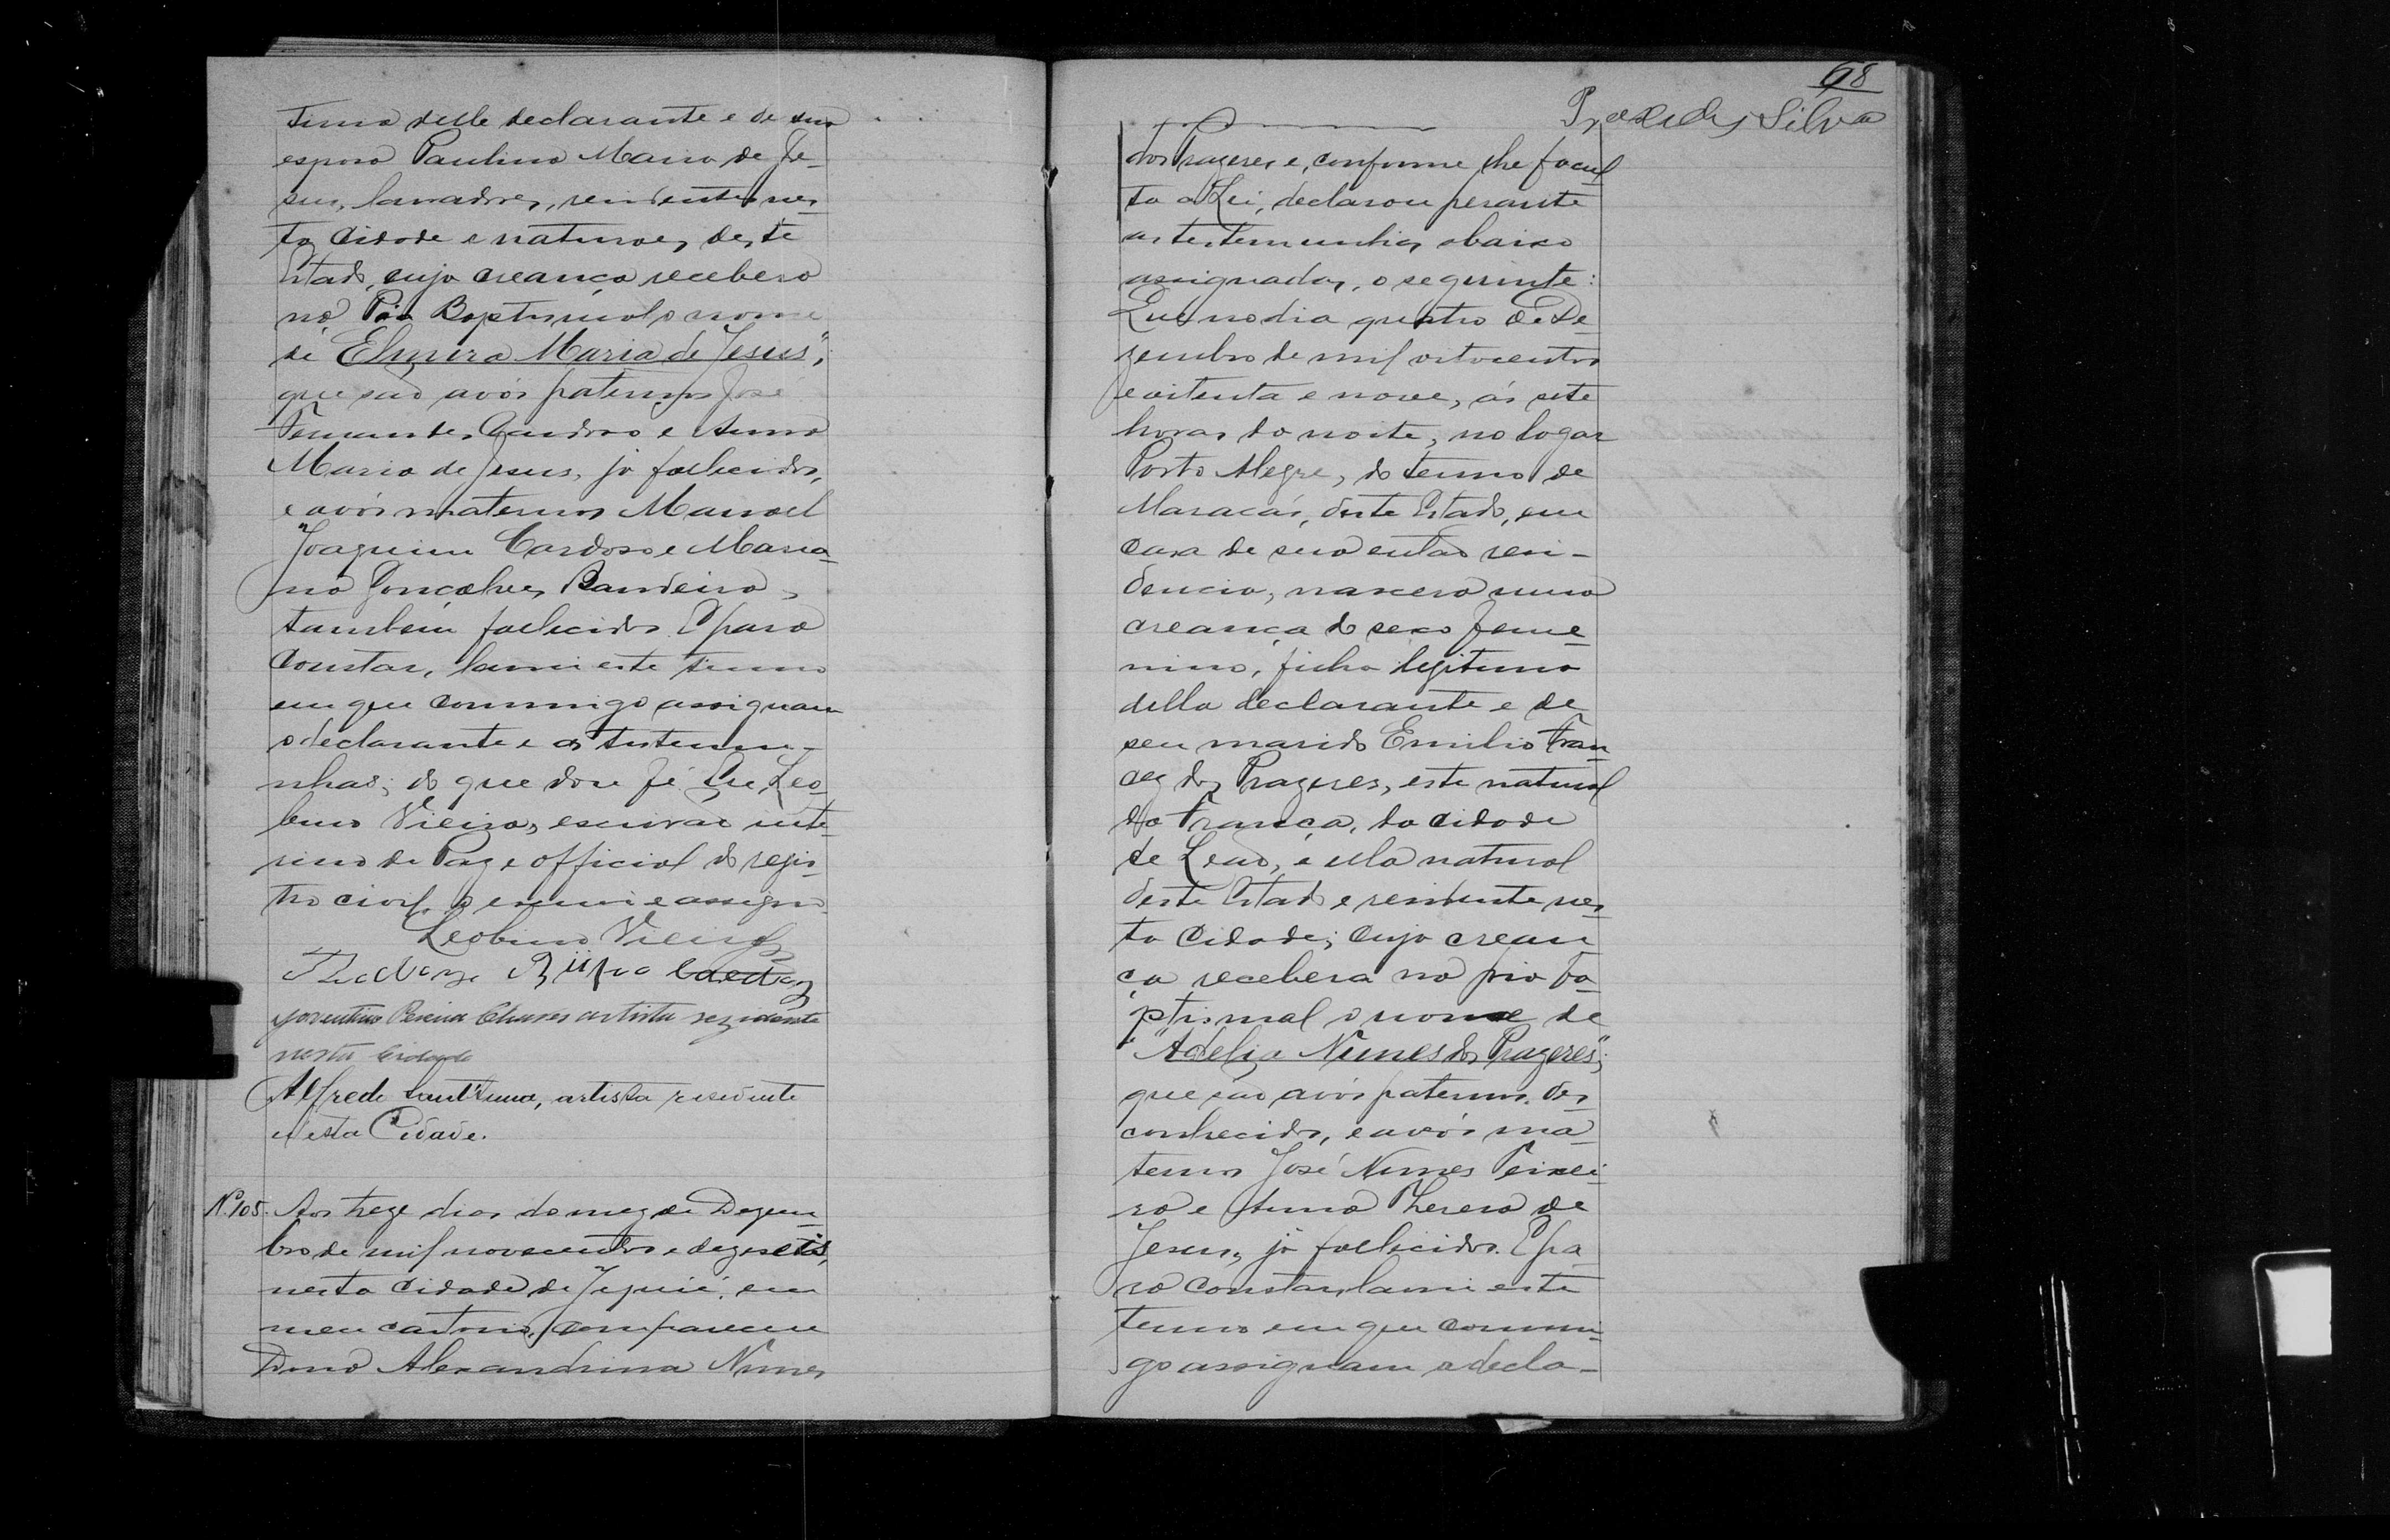 tima delle declarante e de sua
esposa Paulina Maria de Je-
sus, lavradores, residentes nes-
ta Cidade e naturaes deste
Estado, cuja creança recebera
na Pia Baptismal o nome
de "Elmira Maria de Jesus";
que são avós paternos José
Fernandes Cardoso e Anna
Maria de Jesus, já fallecidos,
e avós maternos Manoel
Joaquim Cardoso e Maria-
na Gonçalves Bandeira,
tambem fallecidos. E para
constar, lavrei este termo
em que commigo assignam
o declarante e as testemu-
nhas; do que dou fé. Eu, Leo-
bino Vieira, escrivão inte-
rino de Paz e official do regis-
tro civil, o escrevi e assigno.
Leobino Vieira
Juventino Pereira Chaves artista rezidente
nesta Cidade
Alfredo Sant'Anna, artista residente
nesta Cidade.
Nº 105. Aos treze dias do mez de Dezem-
bro de mil novecentos e dezesete,
nesta Cidade de Jequié, em
meu cartorio, compareceu
Dona Alexandrina Nunes
68
Silva
dos Prazeres e, conforme lhe facul-
ta a Lei, declarou perante
as testemunhas abaixo
assignadas, o seguinte:
Que no dia quatro de De-
zembro de mil oitocentos
e oitenta e nove, ás sete
horas da noite, no logar
Porto Alegre, do termo de
Maracás, deste Estado, em
casa de sua então resi-
dencia, nascera uma
creança do sexo feme-
nino, filha legitima
della declarante e de
seu marido Emilio Fran-
cez dos Prazeres, este natural
da França, da cidade
de Leão, e ella natural
deste Estado e residente nes-
ta Cidade; cuja crean-
ça recebera na pia ba-
ptismal o nome de
"Adelia Nunes dos Prazeres";
que são avós paternos des-
conhecidos, e avós ma-
ternos José Nunes Teixei-
ra e Anna Thereza de
Jesus, já fallecidos. E pa-
ra constar, lavrei este
termo em que commi-
go assignam a decla-